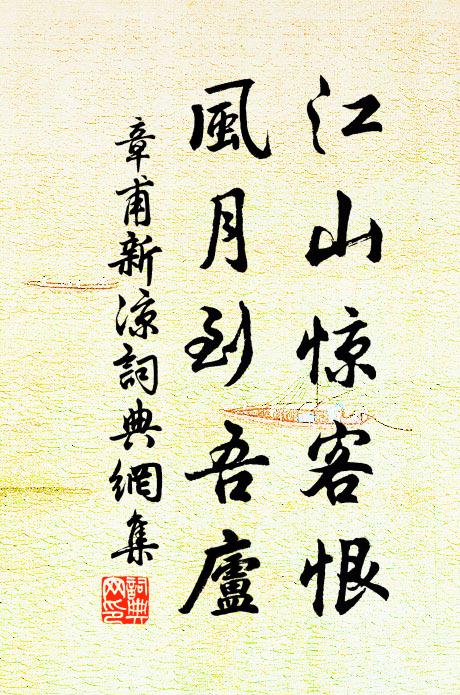 江山惊客恨
風月到吾廬
章甫新凉詞典網集
詞典